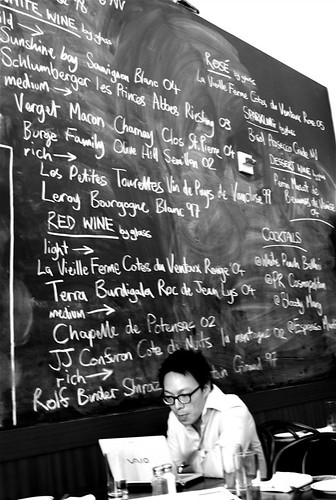 WHITE WINE by glass
Sunshine bay Sauvignon Blanc 04
Schlumberger les Princes Abbes Riesling 03
medium →
Verget Macon Charnay Clos St. Pierre 04
Burge Family Olive Hill Semillon 02
rich →
Les Petites Tourettes Vin de Pays de Vaucluse 99
Leroy Bourgogne Blanc 97
RED WINE by glass
light →
La Vieille Ferme Cotes du Ventoux Rouge 04
Terra Burdigala Roc de Jean Lys 04
medium →
Chapelle de Potensac 02
JJ Confuron Cote de Nuits la montagne 02
rich →
Rolf Binder Shiraz
ROSÉ by glass
La Vieille Ferme Cotes du Ventoux Rose 04
SPARKLING by glass
Bisol Prosecco Crede NV
DESSERT WINE
COCKTAILS
@White Peach Bellini
@PR Cosmopolitan
@Bloody Mary
@Espresso
VAIO